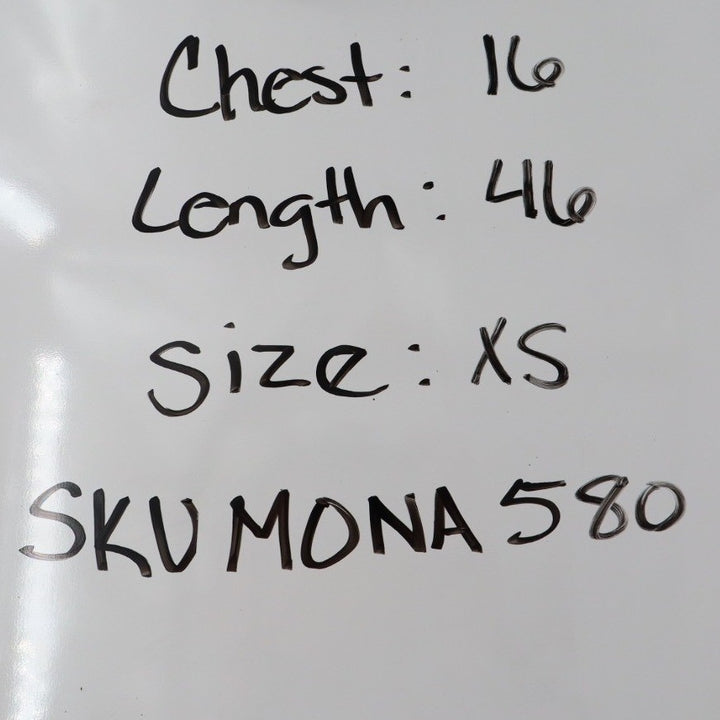 Chest: 16
Length: 46
Size: XS
SKU MONA 580